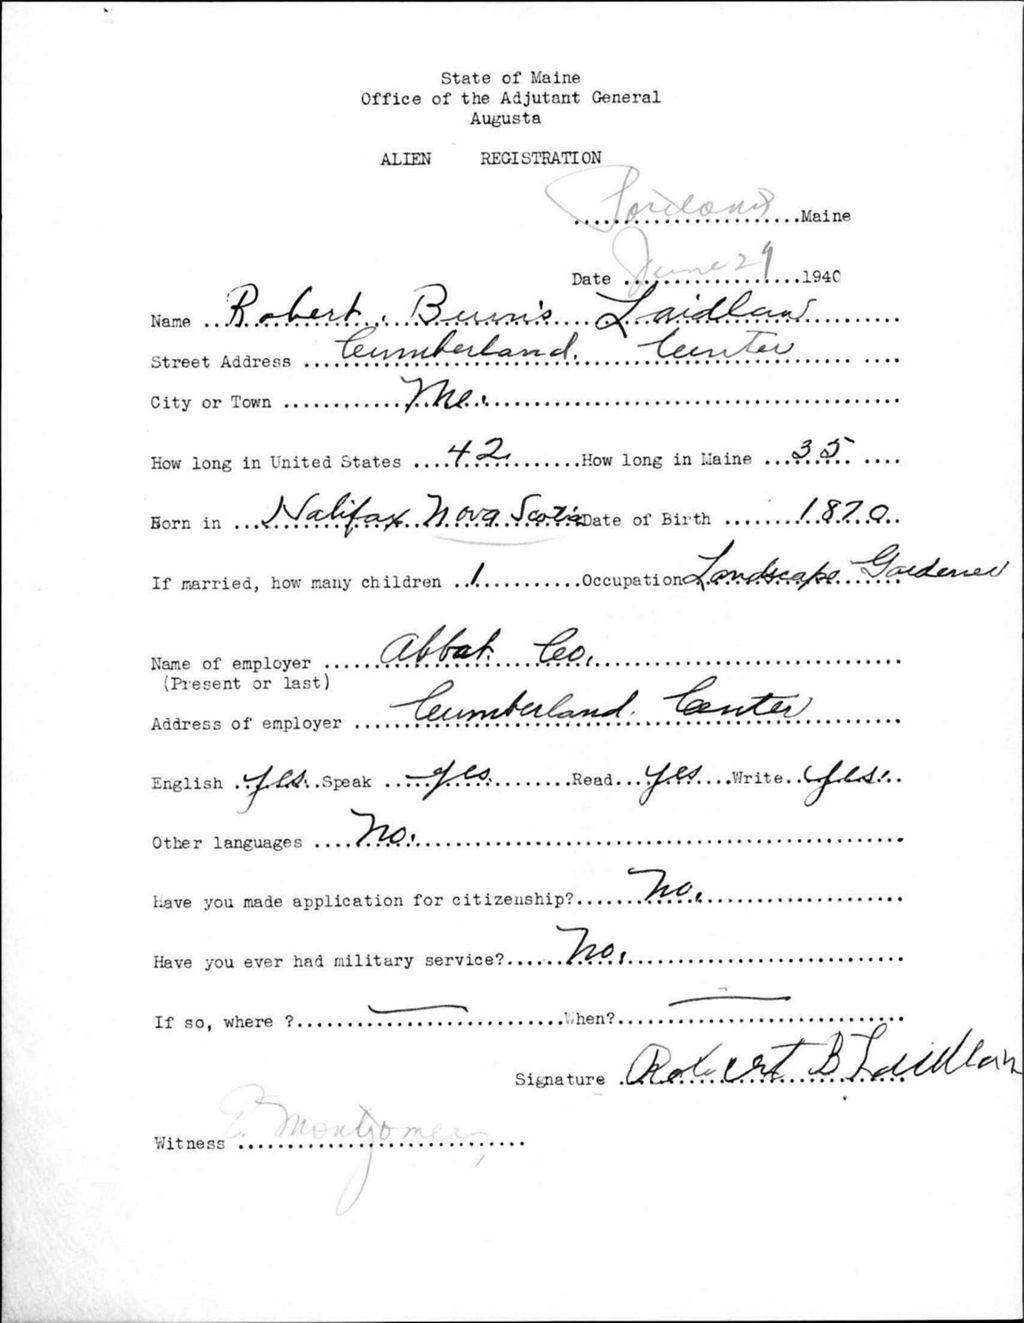 State of Maine
Office of the Adjutant General
Augusta
ALIEN REGISTRATION
Portland Maine
Date June 29 1940
Name Robert Burns Laidlaw
Street Address Cumberland Center
City or Town Me.
How long in United States 42 How long in Maine 35
Born in Halifax Nova Scotia Date of Birth 1870
If married, how many children 1 Occupation Landscape Gardener
Name of employer Abbot Co.
(Present or last)
Address of employer Cumberland Center
English yes. Speak yes. Read yes Write yes.
Other languages No.
Have you made application for citizenship? No.
Have you ever had military service? No.
If so, where ? — When? —
Signature Robert B Laidlaw
Witness E. Montgomery